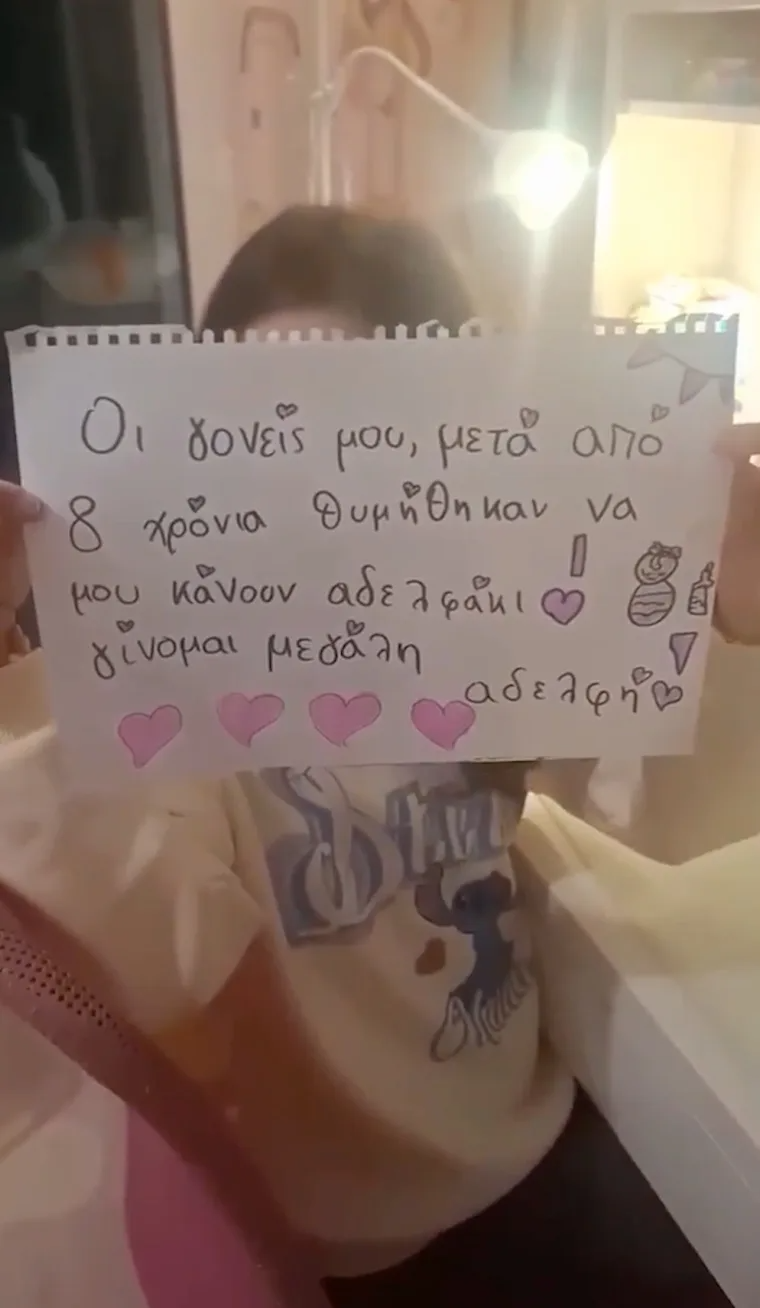 Οι γονείς μου, μετά από
8 χρόνια θυμήθηκαν να
μου κάνουν αδελφάκι!
γίνομαι μεγάλη
αδελφή